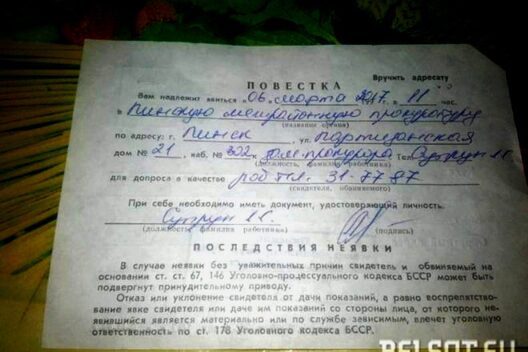 Вручить адресату
ПОВЕСТКА
Вам надлежит явиться "06" марта 2017 г. в 11 час.
в Пинскую межрайонную прокуратуру
(название органа)
по адресу: г. Пинск, ул. Партизанская
дом № 21, каб. № 302 к пом. прокурора Тел. Супрун
(должность, фамилия работника)
для допроса в качестве раб тел. 31-77-87
(свидетеля, обвиняемого)
При себе необходимо иметь документ, удостоверяющий личность.
Супрун
(должность, фамилия работника) (подпись)
ПОСЛЕДСТВИЯ НЕЯВКИ
В случае неявки без уважительных причин свидетель и обвиняемый на
основании ст. ст. 67, 146 Уголовно-процессуального кодекса БССР может быть
подвергнут принудительному приводу.
Отказ или уклонение свидетеля от дачи показаний, а равно воспрепятство-
вание явке свидетеля или даче им показаний со стороны лица, от которого не-
явившийся является материально или по службе зависимым, влечет уголовную
ответственность по ст. 178 Уголовного кодекса БССР.
BELSAT.EU